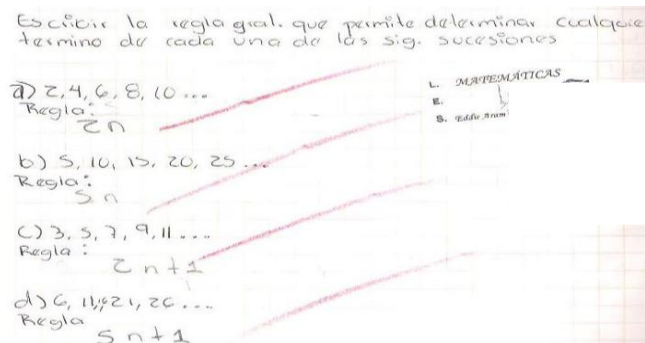 Escribir la regla gral. que permite determinar cualquie
termino de cada una de las sig. sucesiones
a) 2, 4, 6, 8, 10 ...
Regla:
2n
L. MATEMÁTICAS
E.
S. Eddie Aram
b) 5, 10, 15, 20, 25 ...
Regla:
5n
c) 3, 5, 7, 9, 11 ...
Regla:
2n+1
d) 6, 11, 16, 21, 26 ...
Regla
5n+1